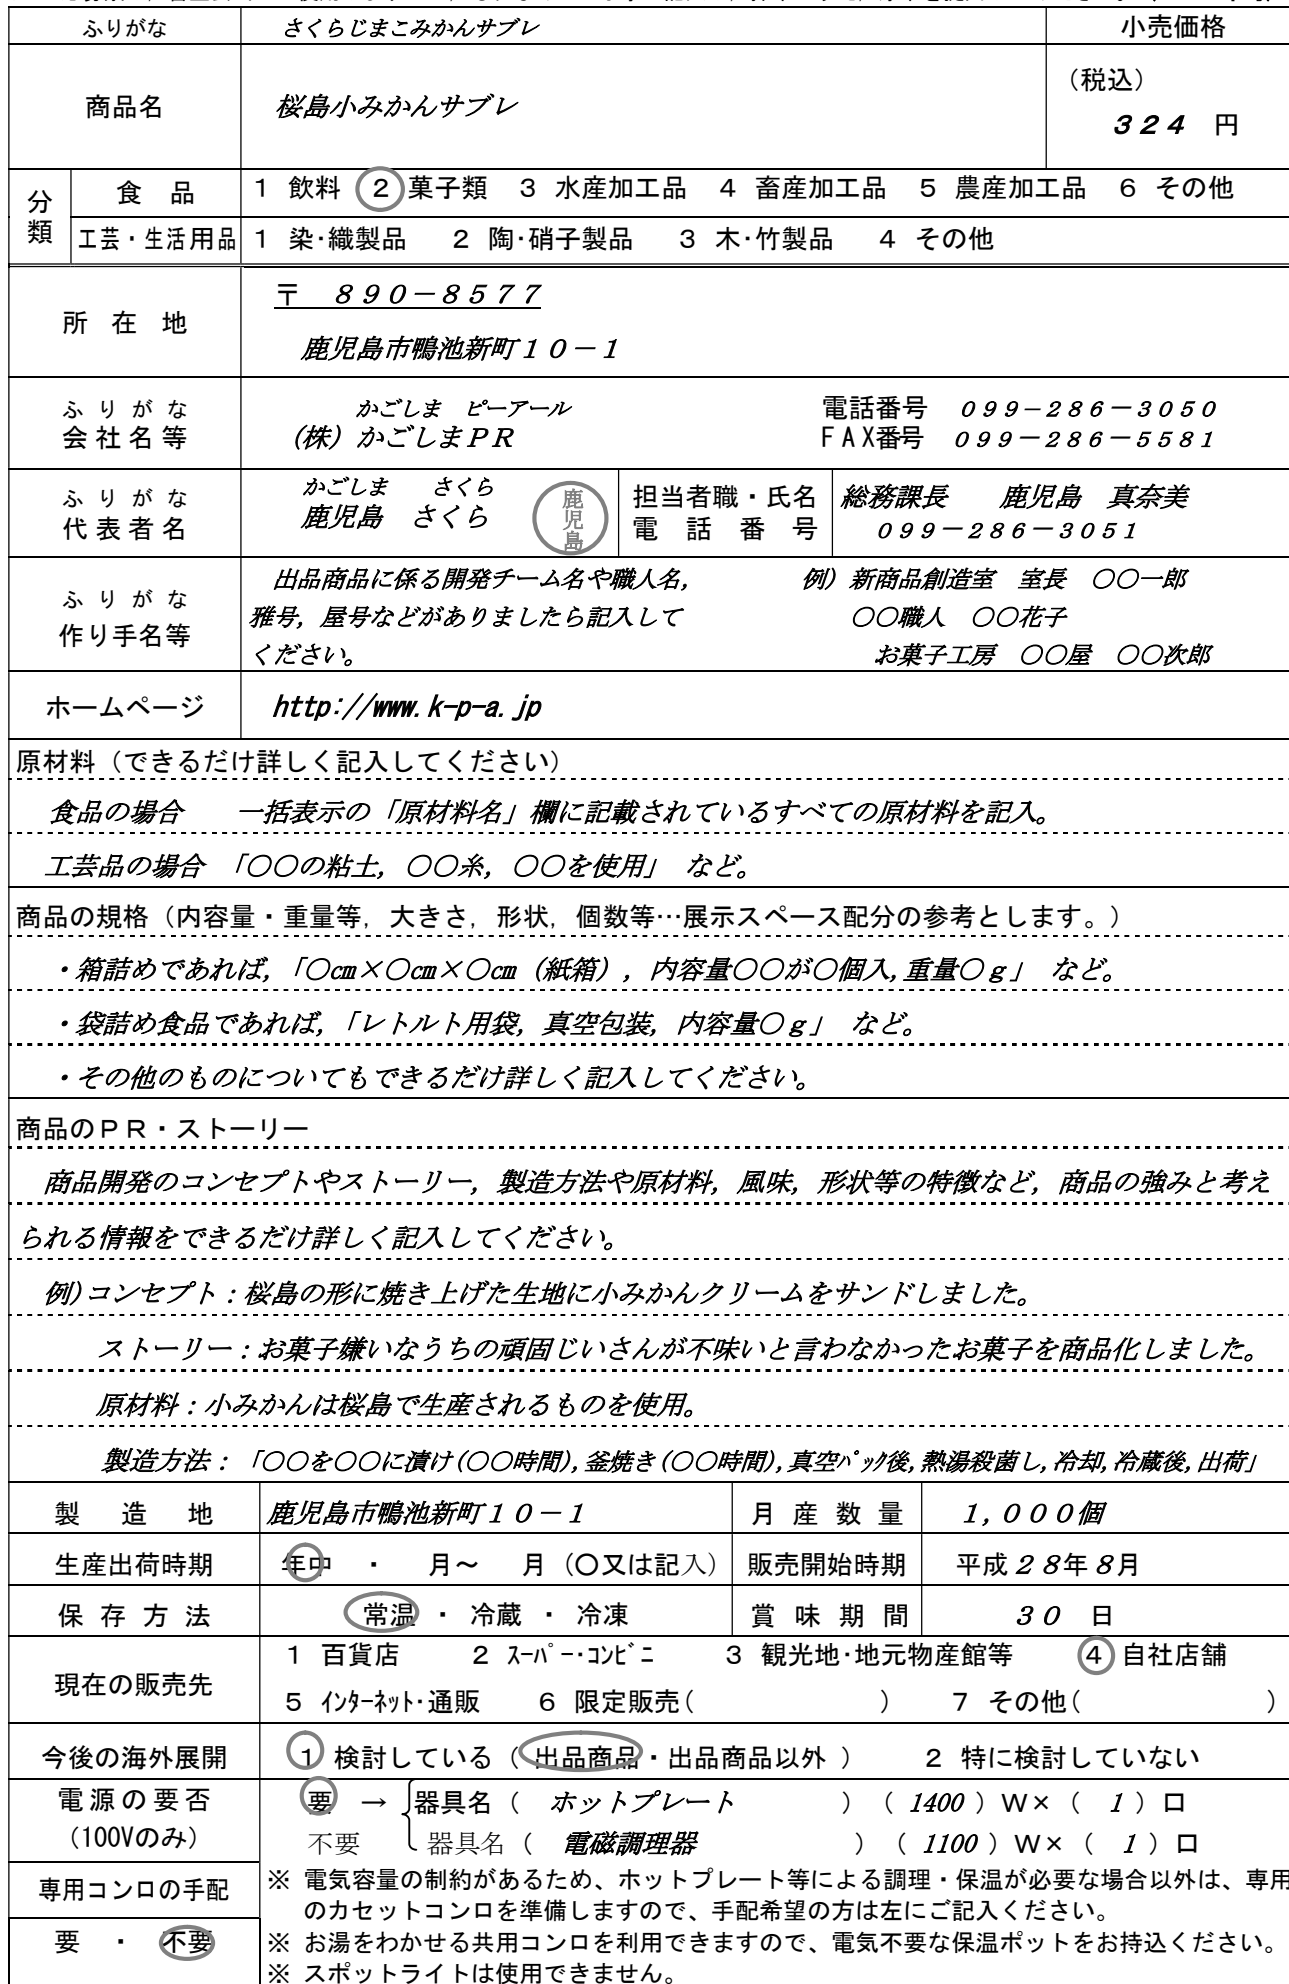 ふりがな　さくらじまこみかんサブレ　小売価格
商品名　桜島小みかんサブレ　（税込）
３２４　円
分類　食　品　１　飲料　②菓子類　３　水産加工品　４　畜産加工品　５　農産加工品　６　その他
工芸・生活用品　１　染・織製品　２　陶・硝子製品　３　木・竹製品　４　その他
所　在　地　〒　８９０－８５７７
鹿児島市鴨池新町１０－１
ふ り が な　かごしま　ピーアール　電話番号　０９９－２８６－３０５０
会 社 名 等　（株）かごしまＰＲ　ＦＡＸ番号　０９９－２８６－５５８１
ふ り が な　かごしま　さくら　鹿児島　担当者職・氏名　総務課長　鹿児島　真奈美
代 表 者 名　鹿児島　さくら　電　話　番　号　０９９－２８６－３０５１
ふ り が な　出品商品に係る開発チーム名や職人名，　例）新商品創造室　室長　〇〇一郎
作り手名等　雅号，屋号などがありましたら記入して　〇〇職人　〇〇花子
ください。　お菓子工房　〇〇屋　〇〇次郎
ホームページ　http://www.k-p-a.jp
原材料（できるだけ詳しく記入してください）
食品の場合　一括表示の「原材料名」欄に記載されているすべての原材料を記入。
工芸品の場合　「〇〇の粘土，〇〇糸，〇〇を使用」　など。
商品の規格（内容量・重量等，大きさ，形状，個数等…展示スペース配分の参考とします。）
・箱詰めであれば，「〇㎝×〇㎝×〇㎝（紙箱），内容量〇〇が〇個入，重量〇ｇ」　など。
・袋詰め食品であれば，「レトルト用袋，真空包装，内容量〇ｇ」　など。
・その他のものについてもできるだけ詳しく記入してください。
商品のＰＲ・ストーリー
商品開発のコンセプトやストーリー，製造方法や原材料，風味，形状等の特徴など，商品の強みと考え
られる情報をできるだけ詳しく記入してください。
例）コンセプト：桜島の形に焼き上げた生地に小みかんクリームをサンドしました。
ストーリー：お菓子嫌いなうちの頑固じいさんが不味いと言わなかったお菓子を商品化しました。
原材料：小みかんは桜島で生産されるものを使用。
製造方法：「〇〇を〇〇に漬け（〇〇時間），釜焼き（〇〇時間），真空ﾊﾟｯｸ後，熱湯殺菌し，冷却，冷蔵後，出荷」
製　造　地　鹿児島市鴨池新町１０－１　月 産 数 量　１,０００個
生産出荷時期　年中　・　月～　月（〇又は記入）　販売開始時期　平成２８年８月
保 存 方 法　常温　・　冷蔵　・　冷凍　賞 味 期 間　３０　日
現在の販売先　１　百貨店　２　ｽｰﾊﾟｰ･ｺﾝﾋﾞﾆ　３　観光地･地元物産館等　④　自社店舗
５　ｲﾝﾀｰﾈｯﾄ･通販　６　限定販売（　）　７　その他（　）
今後の海外展開　１　検討している（　出品商品・出品商品以外　）　２　特に検討していない
電源の要否　要　→　器具名（　ホットプレート　）（　1400　）Ｗ×（　1　）口
(100Vのみ)　不要　器具名（　電磁調理器　）（　1100　）Ｗ×（　1　）口
専用コンロの手配　※　電気容量の制約があるため、ホットプレート等による調理・保温が必要な場合以外は、専用
のカセットコンロを準備しますので、手配希望の方は左にご記入ください。
要　・　不要　※　お湯をわかせる共用コンロを利用できますので、電気不要な保温ポットをお持込ください。
※　スポットライトは使用できません。